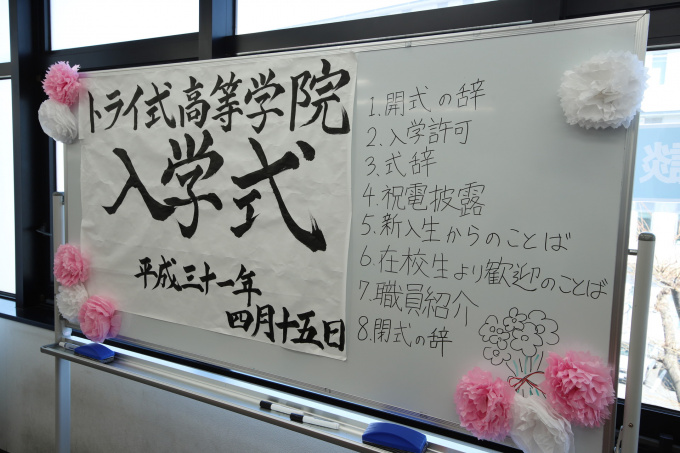 トライ式高等学院
入学式
平成三十一年
四月十五日
1.開式の辞
2.入学許可
3.式辞
4.祝電披露
5.新入生からのことば
6.在校生より歓迎のことば
7.職員紹介
8.閉式の辞
談